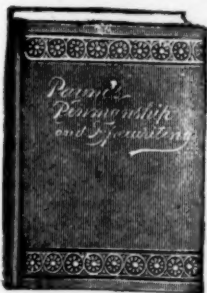 Penmanship
and Typewriting